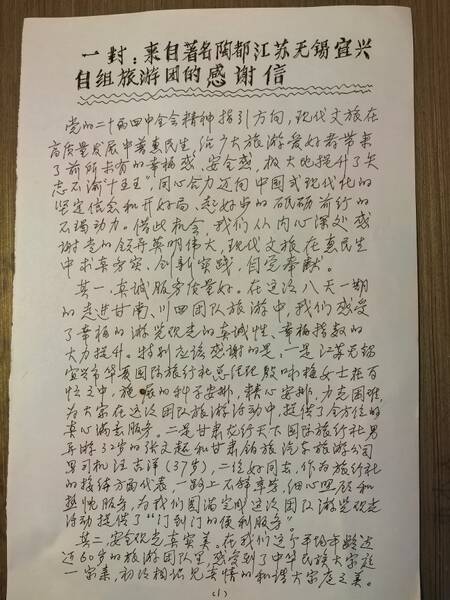 一封:来自著名陶都江苏无锡宜兴
自组旅游团的感谢信
党的二十届四中全会精神指引方向,现代文旅在
高质量发展中着惠民生,给广大旅游爱好者带来
了前所未有的幸福感、安全感,极大地提升了矢
志不渝"十五五",同心合力迈向中国式现代化的
坚定信念和开好局、起好步的砥砺前行的
不竭动力。借此机会,我们从内心深处感
谢党的领导英明伟大,现代文旅在惠民生
中求真务实、创新实践、自觉奉献。
其一、真诚服务质量好。在这次八天一期
的走进甘南、川西团队旅游中,我们感受
了幸福的游览观走的真诚性、幸福指数的
大力提升。特别应该感谢的是,一是江苏无锡
宜兴市华夏国际旅行社总经理殷咏梅女士在百
忙之中,施展的科学安排,精心安排,力克困难,
为大家在这次团队旅游活动中,提供了全方位的
真心满意服务。二是甘肃龙行天下国际旅行社男
导游32岁的张文超和甘肃锦旅汽车旅游公司
男司机汪吉洋(37岁),二位好同志,作为旅行社
的接待方面代表,一路上不辞辛劳,细心照顾和
热忱服务,为我们圆满完成这次团队游览观走
活动提供了"门到门的便利服务"。
其二、安全观走真实美。在我们这个平均年龄达
近60岁的旅游团队里,感受到了中华民族大家庭
一家亲,初次相识见真情的和谐大家庭之美。
(1)